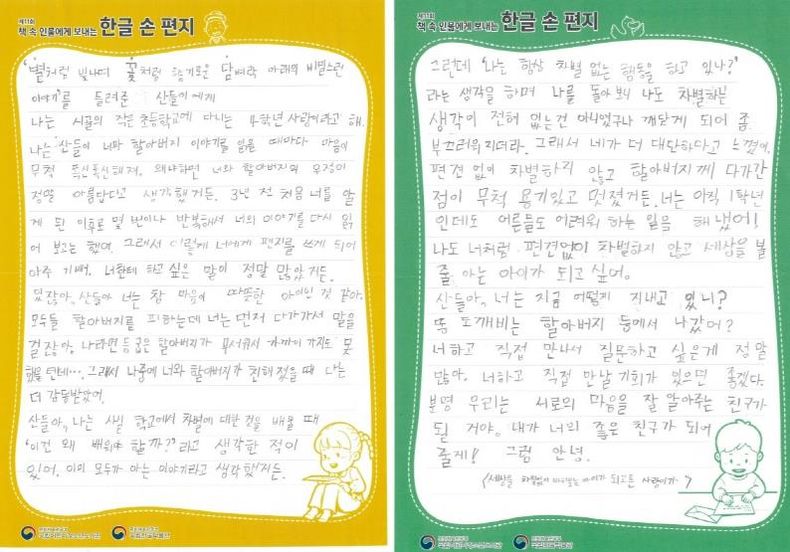 제11회
책 속 인물에게 보내는 한글 손 편지
'별처럼 빛나며 꽃처럼 향기로운 담벼락 아래의 비밀스런
이야기'를 들려준 산들이에게
나는 시골의 작은 초등학교에 다니는 4학년 사랑이라고 해.
나는 '산들이 너와 할아버지 이야기'를 읽을 때마다 마음이
무척 푹신푹신해져. 왜냐하면 너와 할아버지의 우정이
정말 아름답다고 생각했거든. 3년 전 처음 너를 알
게 된 이후로 몇 번이나 반복해서 너의 이야기를 다시 읽
어 보고는 했어. 그래서 이렇게 너에게 편지를 쓰게 되어
아주 기뻐. 너한테 하고 싶은 말이 정말 많았거든.
있잖아, 산들아 너는 참 마음이 따뜻한 아이인 것 같아.
모두들 할아버지를 피하는데 너는 먼저 다가가서 말을
걸잖아. 나라면 등 굽은 할아버지가 무서워서 가까이 가지도 못
했을텐데…. 그래서 나중에 너와 할아버지가 친해졌을 때 나는
더 감동받았어.
산들아, 나는 사실 학교에서 차별에 대한 것을 배울 때
'이건 왜 배워야 할까?'라고 생각한 적이
있어. 이미 모두가 아는 이야기라고 생각했거든.
제11회
책 속 인물에게 보내는 한글 손 편지
그런데 '나는 항상 차별 없는 행동을 하고 있나?'
라는 생각을 하며 나를 돌아 보니 나도 차별하는
생각이 전혀 없는건 아니었구나 깨닫게 되어 좀
부끄러워지더라. 그래서 네가 더 대단하다고 느꼈어.
편견 없이 차별하지 않고 할아버지께 다가간
점이 무척 용기있고 멋졌거든. 너는 아직 1학년
인데도 어른들도 어려워 하는 일을 해냈어!
나도 너처럼 편견없이 차별하지 않고 세상을 볼
줄 아는 아이가 되고 싶어.
산들아, 너는 지금 어떻게 지내고 있니?
똥 도깨비는 할아버지 등에서 나갔어?
너하고 직접 만나서 질문하고 싶은게 정말
많아. 너하고 직접 만날 기회가 있으면 좋겠다.
분명 우리는 서로의 마음을 잘 알아주는 친구가
될 거야. 내가 너의 좋은 친구가 되어
줄게! 그럼 안녕.
<세상을 차별없이 바라보는 아이가 되고픈 사랑이가>